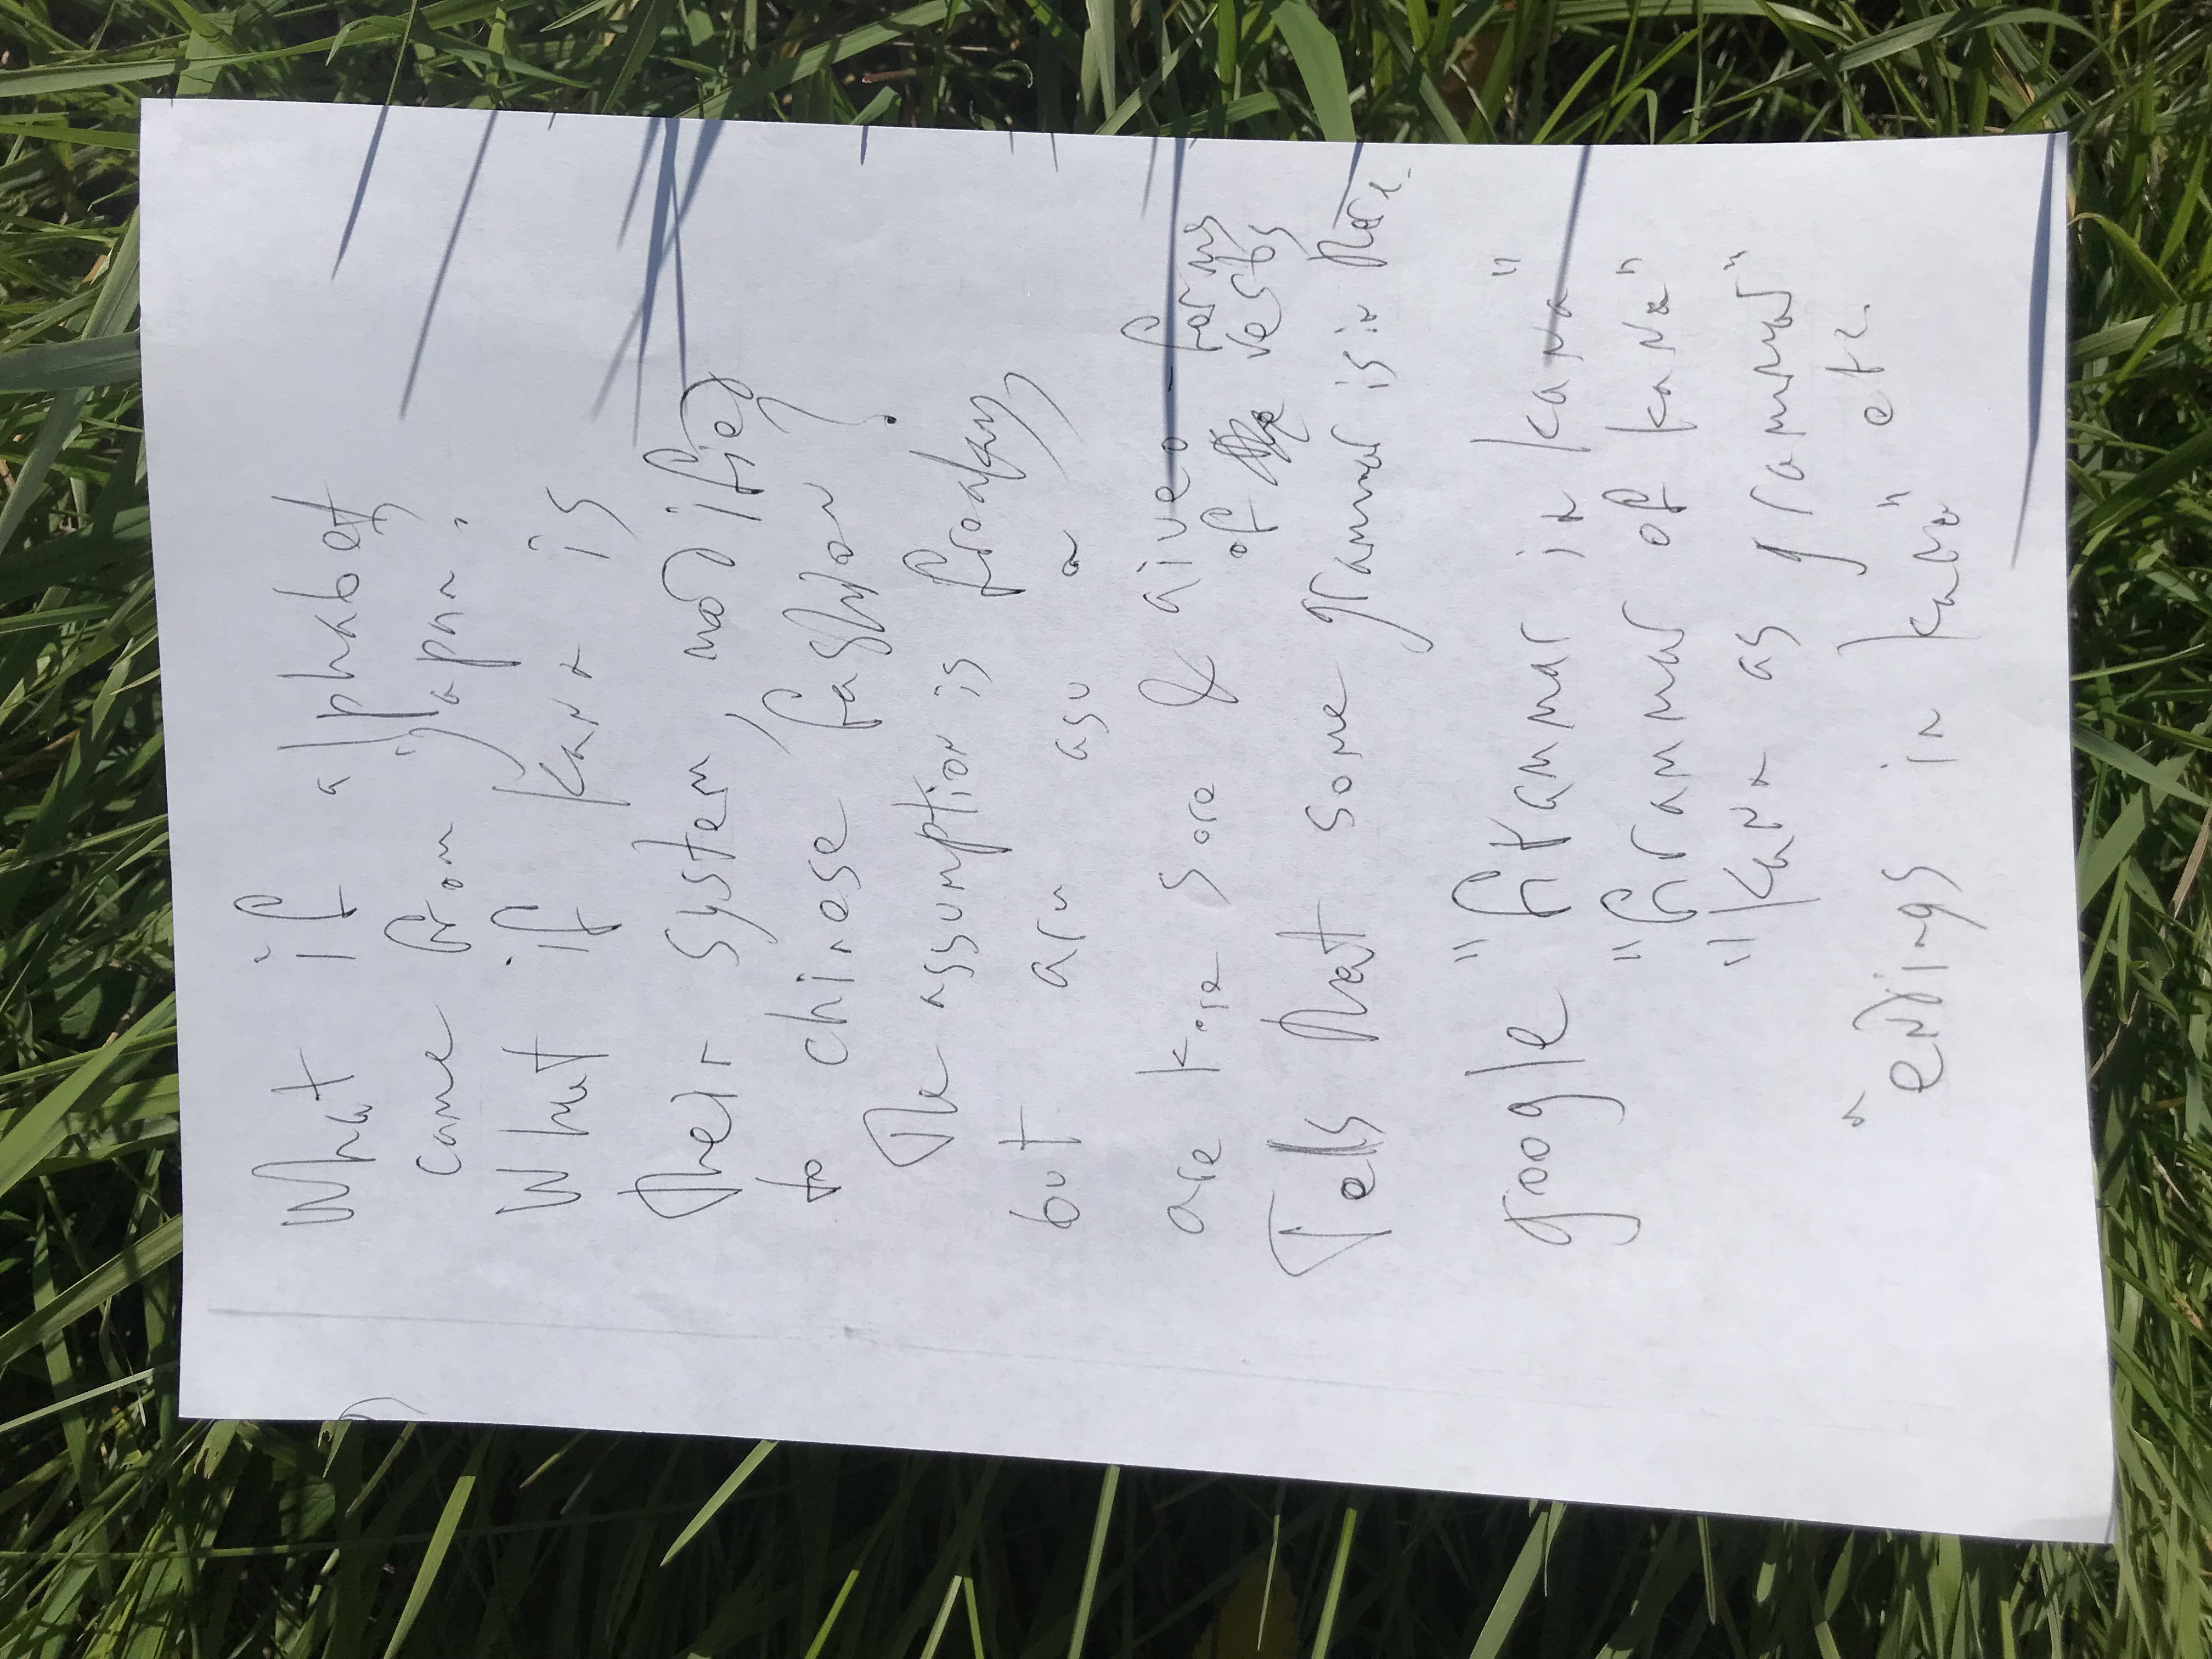 What if alphabet
came from japan?
What if kana is
their system, modified
to chinese fashion?
The assumption is freaky,
but aru asu a
are kore sore & aiueo-forms
of verbs
Tells that some grammar is in there.
google "Grammar in kana"
"Grammar of kana"
"Kana as grammar"
"endings in kana" etc.